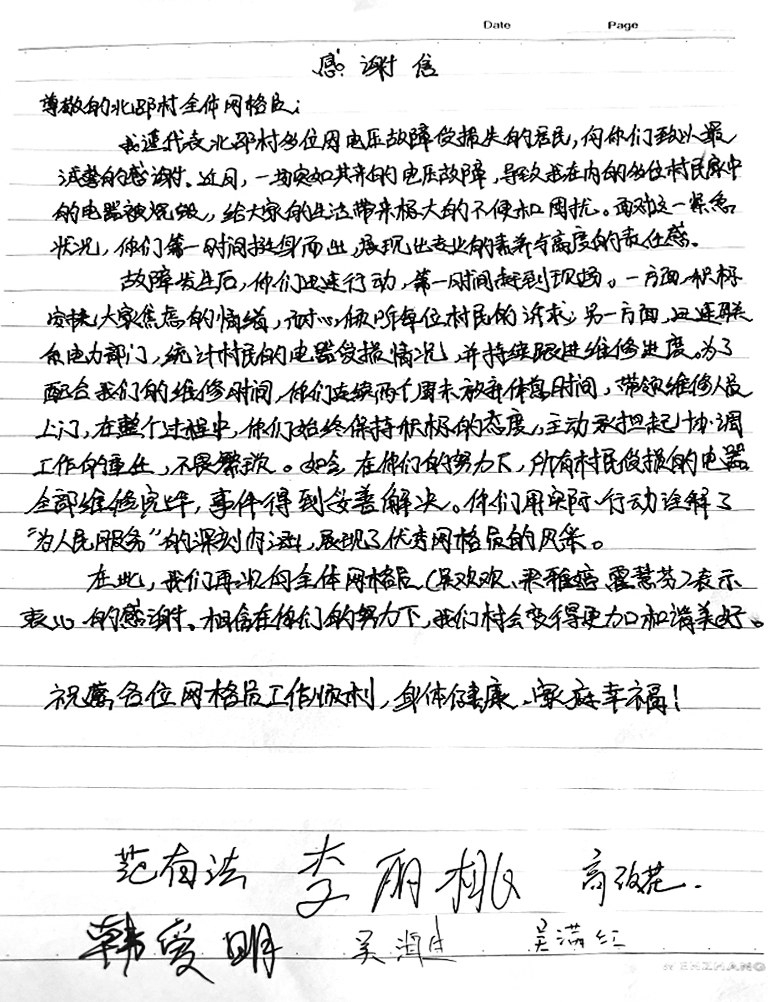 Date Page
感谢信
尊敬的北邵村全体网格员:
我谨代表北邵村多位因电压故障受损失的居民,向你们致以最
诚挚的感谢。近日,一场突如其来的电压故障,导致我在内的多位村民家中
的电器被烧毁,给大家的生活带来极大的不便和困扰。面对这一紧急
状况,你们第一时间挺身而出,展现出专业的素养与高度的责任感。
故障发生后,你们迅速行动,第一时间赶到现场。一方面,积极
安抚大家焦虑的情绪,耐心倾听每位村民的诉求;另一方面,迅速联
系电力部门,统计村民的电器受损情况,并持续跟进维修进度。为了
配合我们的维修时间,你们连续两个周末放弃休息时间,带领维修人员
上门,在整个过程中,你们始终保持积极的态度,主动承担起协调
工作的重任,不畏繁琐。如今在你们的努力下,所有村民受损的电器
全部维修完毕,事件得到妥善解决。你们用实际行动诠释了
“为人民服务”的深刻内涵,展现了优秀网格员的风采。
在此,我们再次向全体网格员(吴欢欢、梁雅婷、霍慧芬)表示
衷心的感谢。相信在你们的努力下,我们村会变得更加和谐美好。
祝愿各位网格员工作顺利,身体健康、家庭幸福!
范有法 李丽桃 高改花.
韩爱明 吴 吴满红